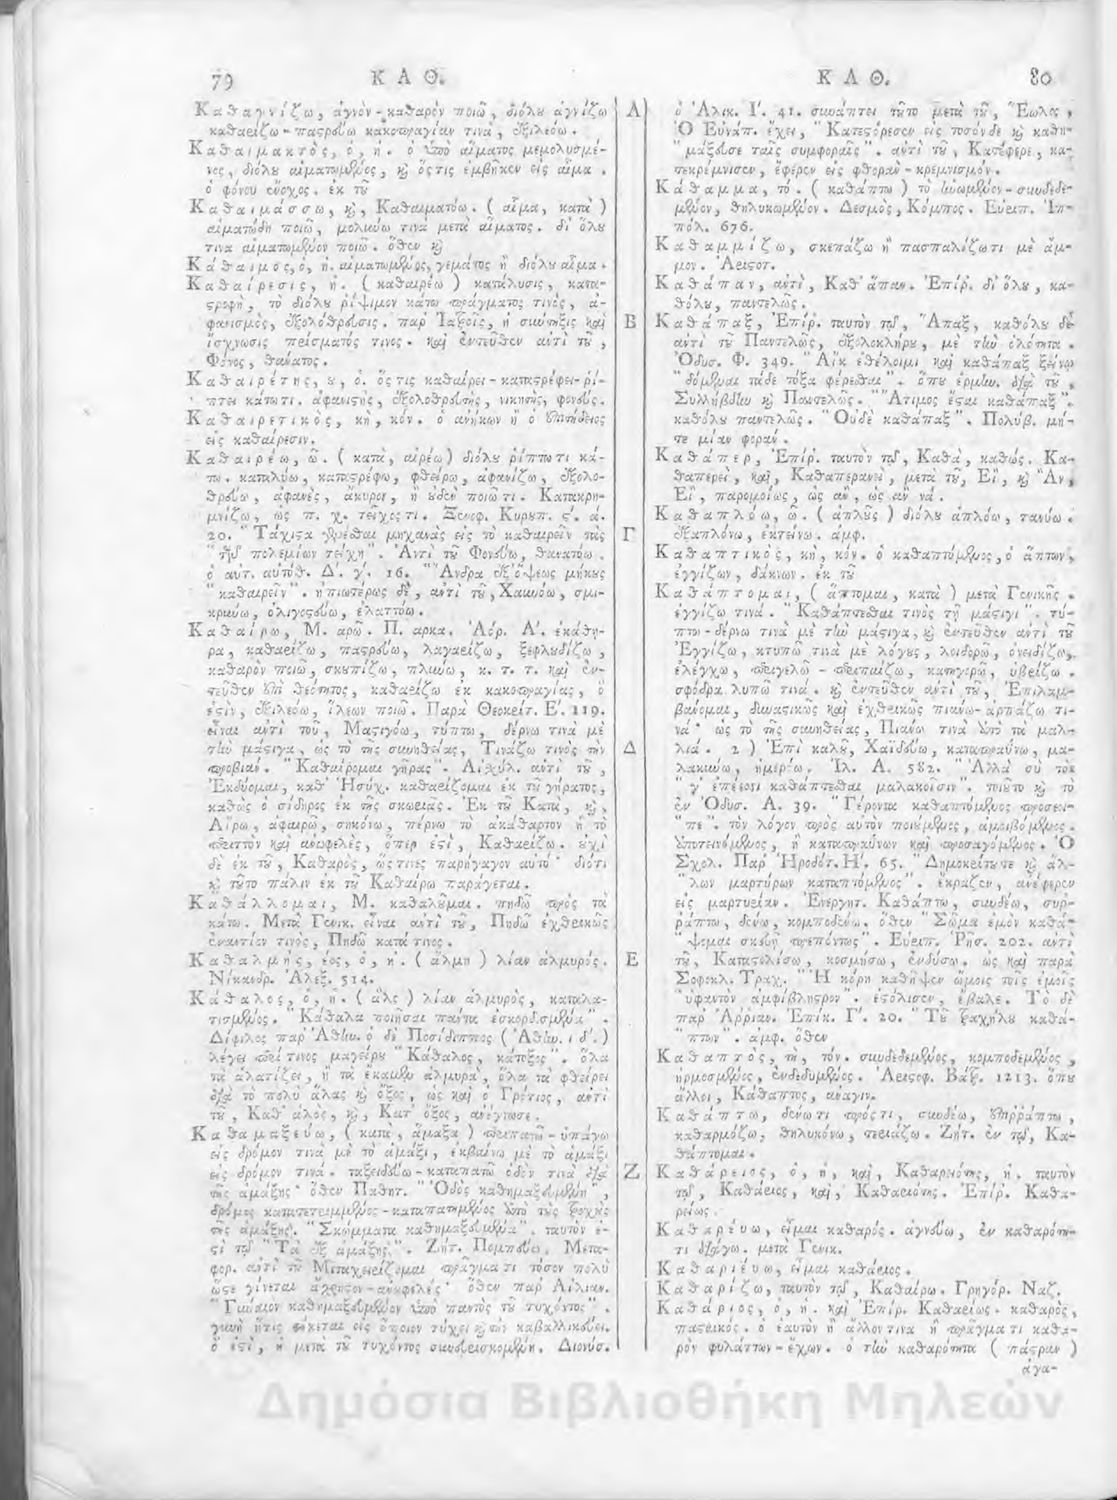 79 ΚΑΘ.
Καθαγνίζω, ἁγνὸν-καθαρὸν ποιῶ, διόλου ἁγνίζω
καθαρίζω-παστρεύω κακοπραγίαν τινὰ, ἐξιλεόω.
Καθαιμακτὸς, ὁ, ἡ. ὁ ὑπὸ αἵματος μεμολυσμέ-
νος, διόλου αἱματωμένος, καὶ ὅστις ἐμβῆκεν εἰς αἷμα.
ὁ φόνου ἔνοχος. ἐκ τοῦ
Καθαιμάσσω, καὶ, Καθαιματόω. ( αἷμα, κατὰ )
αἱματώδη ποιῶ, μολύνω τινὰ μετὰ αἵματος. δι' ὅλου
τινα αἱματωμένον ποιῶ. ὅθεν καὶ
Κάθαιμος, ὁ, ἡ. αἱματωμένος, γεμάτος ἢ διόλου αἷμα.
Καθαίρεσις, ἡ. ( καθαιρέω ) κατάλυσις, κατα-
στροφὴ, τὸ διόλου ῥίψιμον κάτω πράγματος τινὸς, ἀ-
φανισμὸς, ἐξολόθρευσις. παρ' Ἰατροῖς, ἡ σύντηξις καὶ
ἴσχνωσις πείσματός τινος. καὶ ἐντεῦθεν ἀντὶ τοῦ,
Φόνος, θάνατος.
Καθαιρέτης, ου, ὁ. ὅστις καθαίρει-καταστρέφει-ῥί-
πτει κάτω τι. ἀφανιστὴς, ἐξολοθρευτὴς, νικητὴς, φονεύς.
Καθαιρετικὸς, κὴ, κόν. ὁ ἀνήκων ἢ ὁ ἐπιτήδειος
εἰς καθαίρεσιν.
Καθαιρέω, ῶ. ( κατὰ, αἱρέω ) διόλου ῥίπτω τι κά-
τω. καταλύω, καταστρέφω, φθείρω, ἀφανίζω, ἐξολο-
θρεύω, ἀφανὲς, ἄκυρον, ἢ οὐδὲν ποιῶ τι. Κατακρη-
μνίζω, ὡς π. χ. τεῖχος τι. Ξενοφ. Κυρουπ. ς'. ά.
20. "Τάχιστα γρέσθαι μηχανὰς εἰς τὸ καθαιρεῖν τὰς
" τῶν πολεμίων τείχη". Ἀντὶ τοῦ Φονεύω, θανατόω.
ὁ αὐτ. αὐτόθ. Δ'. γ'. 16. "Ἄνδρα ἐξ ὄψεως μήκους
"καθαιρεῖν". ἡπιωτέρως δὲ, ἀντὶ τοῦ, Χαυνόω, σμι-
κρύνω, ὀλιγοστεύω, ἐλαττόω.
Καθαίρω, Μ. αρῶ. Π. αρκα. Ἀόρ. Α'. ἐκάθη-
ρα, καθαρίζω, παστρεύω, λαγαρίζω, ξεφλουδίζω,
καθαρὸν ποιῶ, σκουπίζω, πλύνω, κ. τ. τ. καὶ ἐν-
τεῦθεν ἐπὶ θεότητος, καθαρίζω ἐκ κακοπραγίας, ὅ
ἐστὶν, ἐξιλεόω, ἵλεων ποιῶ. Παρὰ Θεοκρίτ. Ε'. 119.
εἶναι ἀντὶ τοῦ, Μαστιγόω, τύπτω, δέρνω τινὰ μὲ
τὴν μάστιγα, ὡς τὸ τῆς συνηθείας, Τινάζω τινὸς τὴν
προβιάν. "Καθαίρομαι γῆρας". Αἰσχύλ. ἀντὶ τοῦ,
Ἐκδύομαι, καθ' Ἡσύχ. καθαρίζομαι ἐκ τοῦ γήρατος,
καθὼς ὁ σίδηρος ἐκ τῆς σκωρίας. Ἐκ τοῦ Κατὰ, καὶ,
Αἴρω, ἀφαιρῶ, σηκόνω, πέρνω τὸ ἀκάθαρτον ἢ τὸ
περιττὸν καὶ ἀνωφελὲς, ὅπερ ἐστὶ, Καθαρίζω. οὐχὶ
δὲ ἐκ τοῦ, Καθαρὸς, ὥς τινες παρήγαγον αὐτό· διότι
καὶ τοῦτο πάλιν ἐκ τοῦ Καθαίρω παράγεται.
Καθάλλομαι, Μ. καθαλοῦμαι. πηδῶ πρὸς τὰ
κάτω. Μετὰ Γενικ. εἶναι ἀντὶ τοῦ, Πηδῶ ἐχθρικῶς
ἐναντίον τινὸς, Πηδῶ κατά τινος.
Καθαλμὴς, έος, ὁ, ἡ. ( ἅλμη ) λίαν ἁλμυρός.
Νίκανδρ. Ἀλεξ. 514.
Κάθαλος, ὁ, ἡ. ( ἅλς ) λίαν ἁλμυρὸς, καταλα-
τισμένος. "Κάθαλα ποιῆσαι πάντα ἐσκορδισμένα".
Δίφιλος παρ' Ἀθήν. ὁ δὲ Ποσίδιππος ( Ἀθήν. ι δ'. )
λέγει περί τινος μαγείρου "Κάθαλος, κάτοξος". ὅλα
τὰ ἁλατίζει, ἢ τὰ ἔκαμνεν ἁλμυρὰ, ὅλα τὰ φθείρει
διὰ τὸ πολὺ ἅλας καὶ ὄξος, ὡς καὶ ὁ Γρότιος, ἀντὶ
τοῦ, Καθ' ἁλὸς, καὶ, Κατ' ὄξος, ἀνέγνωσε.
Καθαμαξεύω, ( κατὰ, ἅμαξα ) περιπατῶ-ὑπάγω
εἰς δρόμον τινὰ μὲ τὸ ἁμάξι, ἐκβαίνω μὲ τὸ ἁμάξι
εἰς δρόμον τινά. ταξειδεύω-καταπατῶ ὁδὸν τινὰ διὰ
τῆς ἁμάξης· ὅθεν Παθητ. "Ὁδὸς καθημαξευμένη",
δρόμος κατατετριμμένος-καταπατημένος ὑπὸ τοὺς τροχοὺς
τῆς ἁμάξης. "Σκώμματα καθημαξευμένα". ταυτὸν ἐ-
στὶ τῷ "Τὰ ἐξ ἁμάξης". Ζήτ. Πομπεύω. Μετα-
φορ. ἀντὶ τοῦ Μεταχειρίζομαι πρᾶγμά τι τόσον πολὺ
ὥστε γίνεται ἄχρηστον-ἀνωφελές· ὅθεν παρ' Αἰλιαν.
"Γύναιον καθημαξευμένον ὑπὸ παντὸς τοῦ τυχόντος".
γυνὴ ἥτις κεῖται εἰς ὅποιον τύχει καὶ τὴν καβαλλικεύει.
ὅ ἐστὶ, ἡ μετὰ τοῦ τυχόντος συνευρισκομένη. Διονύσ.
Α
Β
Γ
Δ
Ε
Ζ
ΚΑΘ. 80
ὁ Ἁλικ. Ι'. 41. συνάπτει τοῦτο μετὰ τοῦ, Ἕωλος,
Ὁ Εὐνάπ. ἔχει, "Κατεφόρεσεν εἰς τοσόνδε καὶ καθη-
"μάξευσε ταῖς συμφοραῖς". ἀντὶ τοῦ, Κατέφερε, κα-
τεκρέμνισεν, ἔφερεν εἰς φθορὰν-κρεμνισμόν.
Κάθαμμα, τό. ( καθάπτω ) τὸ ἡνωμένον-συνδεδε-
μένον, θηλυκωμένον. Δεσμὸς, Κόμπος. Εὐριπ. Ἱπ-
πόλ. 676.
Καθαμμίζω, σκεπάζω ἢ πασπαλίζω τι μὲ ἄμ-
μον. Ἀριστοτ.
Καθάπαν, ἀντὶ, Καθ' ἅπαν. Ἐπίρ. δι' ὅλου, κα-
θόλου, παντελῶς.
Καθάπαξ, Ἐπίρ. ταυτὸν τῷ, Ἅπαξ, καθόλου δὲ
ἀντὶ τοῦ Παντελῶς, ἐξολοκλήρου, μὲ τὴν ὁλότητα.
Ὀδυσ. Φ. 349. "Αἴκ' ἐθέλοιμι καὶ καθάπαξ ξείνῳ
"δόμεναι τάδε τόξα φέρεσθαι". ὅπου ἑρμην. διὰ τοῦ,
Συλλήβδην καὶ Παντελῶς. "Ἄτιμος ἔσται καθάπαξ".
καθόλου παντελῶς. "Οὐδὲ καθάπαξ". Πολύβ. μή-
τε μίαν φοράν.
Καθάπερ, Ἐπίρ. ταυτὸν τῷ, Καθὰ, καθώς. Κα-
θαπερεὶ, καὶ, Καθαπερανεὶ, μετὰ τοῦ, Εἰ, καὶ Ἂν,
Εἰ, παρομοίως, ὡς ἂν, ὡς ἂν νά.
Καθαπλόω, ῶ. ( ἁπλοῦς ) διόλου ἁπλόω, τανύω.
ἐξαπλόνω, ἐκτείνω. ἀμφ.
Καθαπτικὸς, κὴ, κόν. ὁ καθαπτόμενος, ὁ ἅπτων,
ἐγγίζων, δάκνων. ἐκ τοῦ
Καθάπτομαι, ( ἅπτομαι, κατὰ ) μετὰ Γενικῆς.
ἐγγίζω τινά. "Καθάπτεσθαι τινὸς τῇ μάστιγι". τύ-
πτω-δέρνω τινὰ μὲ τὴν μάστιγα, καὶ ἐντεῦθεν ἀντὶ τοῦ
Ἐγγίζω, κτυπῶ τινὰ μὲ λόγους, λοιδορῶ, ὀνειδίζω,
ἐλέγχω, περιγελῶ-περιπαίζω, κατηγορῶ, ὑβρίζω.
σφόδρα λυπῶ τινά. καὶ ἐντεῦθεν ἀντὶ τοῦ, Ἐπιλαμ-
βάνομαι, δυναστικῶς καὶ ἐχθρικῶς πιάνω-ἁρπάζω τι-
νά· ὡς τὸ τῆς συνηθείας, Πιάνω τινὰ ὑπὸ τὰ μαλ-
λιά. 2 ) Ἐπὶ καλοῦ, Χαϊδεύω, καταπραΰνω, μα-
λακύνω, ἡμερόω. Ἰλ. Α. 582. "Ἀλλὰ σὺ τόν
"γ' ἐπέεσσι καθάπτεσθαι μαλακοῖσιν". τοῦτο καὶ τὸ
ἐν Ὀδυσ. Α. 39. "Γέροντα καθαπτόμενος προσεεί-
"πε". τὸν λόγον πρὸς αὐτὸν ποιούμενος, ἀμειβόμενος.
ὑποτεινόμενος, ἢ καταπραΰνων καὶ προσαγόμενος. Ὁ
Σχολ. Παρ' Ἡροδότ. Η'. 65. "Δημοκρίτου τε καὶ ἀλ-
"λων μαρτύρων καταπτόμενος". ἔκραζεν, ἀνέφερεν
εἰς μαρτυρίαν. Ἐνέργητ. Καθάπτω, συνδέω, συρ-
ράπτω, δένω, κομποδένω. ὅθεν "Σῶμα ἐμὸν καθά-
"ψομαι σκευῇ πρεπόντως". Εὐριπ. Ῥῆσ. 202. ἀντὶ
τοῦ, Καταστολίσω, κοσμήσω, ἐνδύσω. ὡς καὶ παρὰ
Σοφοκλ. Τραχ. "Ἡ κόρη καθῆψεν ὤμοις τοῖς ἐμοῖς
"ὑφαντὸν ἀμφίβληστρον". ἐστόλισεν, ἔβαλε. Τὸ δὲ
παρ' Ἀρριαν. Ἐπίκ. Γ'. 20. "Τοῦ τραχήλου καθά-
"πτων". ἀμφ. ὅθεν
Καθαπτὸς, τὴ, τόν. συνδεδεμένος, κομποδεμένος,
ἡρμοσμένος, ἐνδεδυμένος. Ἀριστοφ. Βάτρ. 1213. ὅπου
ἄλλοι, Κάθαπτος, ἀνάγιν.
Καθάπτω, δένω τι πρός τι, συνδέω, ἐπιρράπτω,
καθαρμόζω, θηλυκόνω, τεριάζω. Ζήτ. ἐν τῷ, Κα-
θάπτομαι.
Καθάρειος, ὁ, ἡ, καὶ, Καθαρειότης, ἡ. ταυτὸν
τῷ, Καθάριος, καὶ, Καθαριότης. Ἐπίρ. Καθα-
ρείως.
Καθαρεύω, εἶμαι καθαρός. ἁγνεύω, ἐν καθαρότη-
τι διάγω. μετὰ Γενικ.
Καθαριεύω, εἶμαι καθάριος.
Καθαρίζω, ταυτὸν τῷ, Καθαίρω. Γρηγόρ. Ναζ.
Καθάριος, ὁ, ἡ. καὶ Ἐπίρ. Καθαρίως. καθαρὸς,
παστρικός. ὁ ἑαυτὸν ἢ ἄλλον τινα ἢ πρᾶγμά τι καθα-
ρὸν φυλάττων-ἔχων. ὁ τὴν καθαρότητα ( πάστραν )
ἀγα-
Δημόσια Βιβλιοθήκη Μηλεών